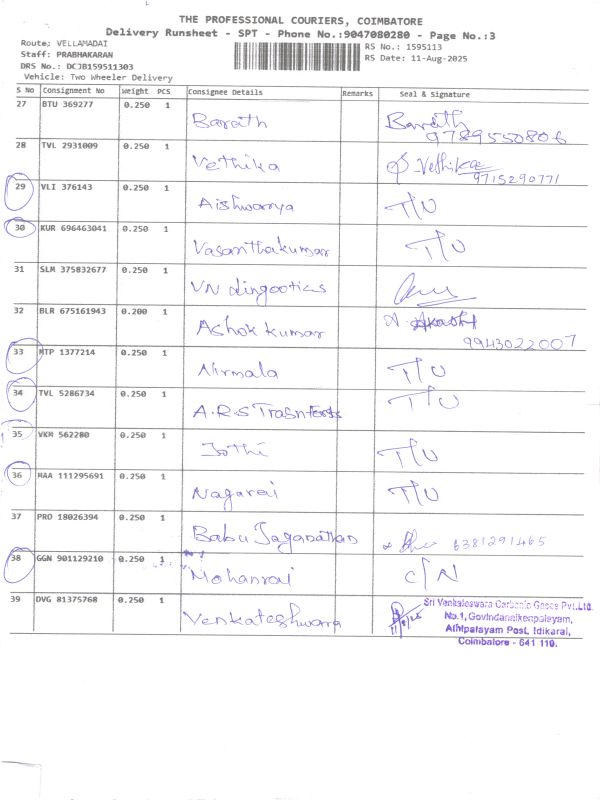 THE PROFESSIONAL COURIERS, COIMBATORE
Delivery Runsheet - SPT - Phone No.:9047080280 - Page No.:3
Route: VELLAMADAI RS No.: 1595113
Staff: PRABHAKARAN RS Date: 11-Aug-2025
DRS No.: DCJB159511303
Vehicle: Two Wheeler Delivery
S No Consignment No Weight PCS Consignee Details Remarks Seal & Signature
27 BTU 369277 0.250 1 Barath Barath
9789550806
28 TVL 2931009 0.250 1 Vethika Vethika
9715290771
29 VLI 376143 0.250 1 Aishwarya T/U
30 KUR 696463041 0.250 1 Vasanthakumar T/U
31 SLM 375832677 0.250 1 VN
32 BLR 675161943 0.200 1 Ashok kumar A. Akash
9943022007
33 MTP 1377214 0.250 1 Nirmala T/U
34 TVL 5286734 0.250 1 A.R.S T/U
35 VKM 562280 0.250 1 Jothi T/U
36 MAA 111295691 0.250 1 Nagarai T/U
37 PRO 18026394 0.250 1 Babu Jaganathan 6381291465
38 GGN 901129210 0.250 1 Mohanrai C/N
39 DVG 81375768 0.250 1 Venkateshwara
Sri Venkateswara Carbonic Gases Pvt.Ltd.
No.1, Govindanaikenpalayam,
Athipalayam Post, Idikarai,
Coimbatore - 641 110.